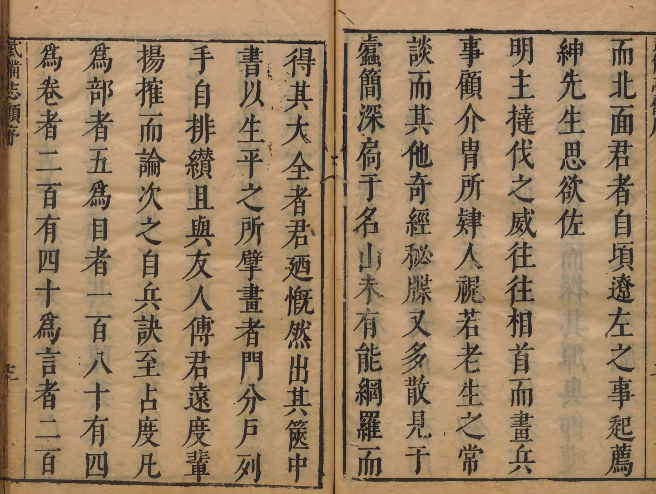 而北面君者自頃遼左之事起薦
紳先生思欲佐
明主撻伐之威往往相首而畫兵
事顧介冑所肄人視若老生之常
談而其他奇經秘牒又多散見于
蠹簡深扃于名山未有能綱羅而
得其大全者君廼慨然出其篋中
書以生平之所擘畫者門分戶列
手自排纘且與友人傅君遠度輩
揚搉而論次之自兵訣至占度凡
為部者五為目者一百八十有四
為卷者二百有四十為言者二百
武備志顧序